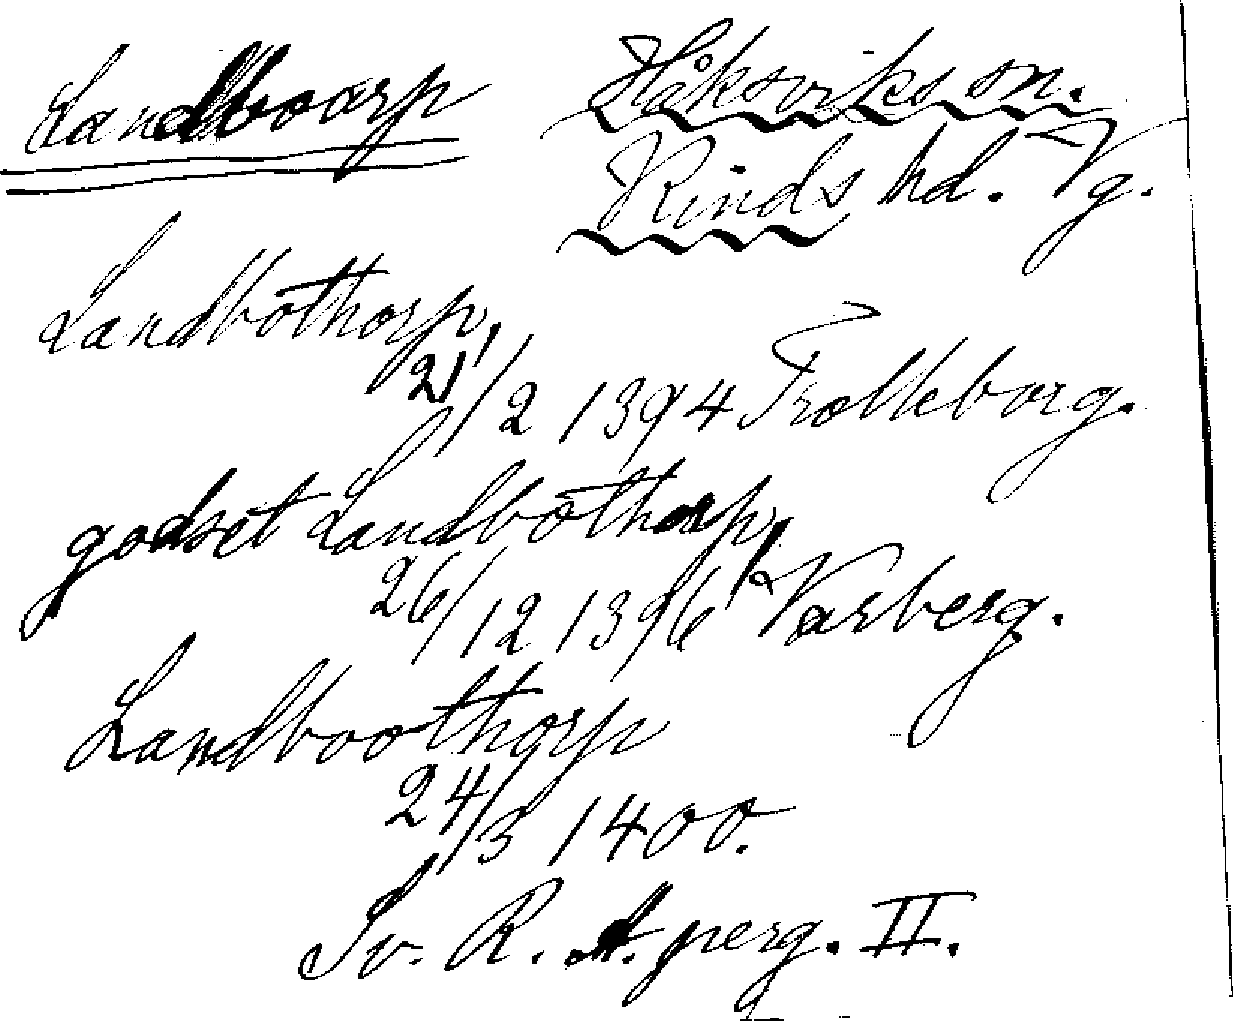 Landboarp Håksviks sn.
Kinds hd. Vg.
Landbothorp,
21/2 1394 Trolleborg.
godset Landbothorp,
26/12 1396 Varberg.
Landboothorp
24/3 1400.
Sv. R. A. perg. II.